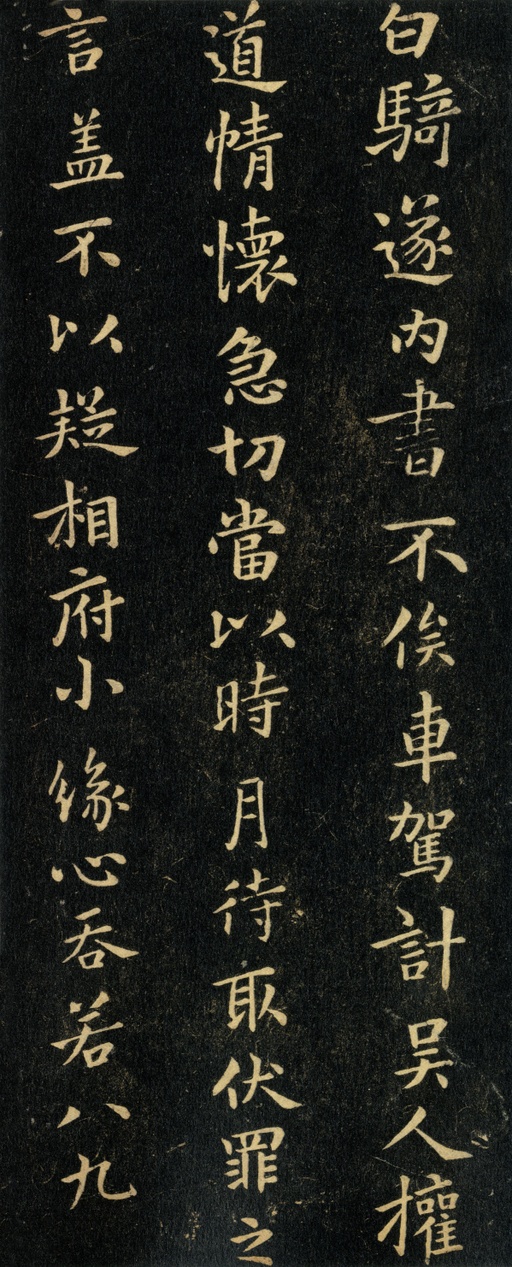 白騎遂内書不俟車駕計吴人擁
道情懷急切當以時月待取伏罪之
言盖不以疑相府小緣心吞若八九